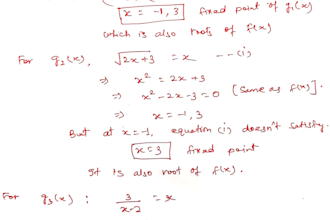 x = -1, 3 fixed point of g₁(x)
which is also roots of f(x)
For g₂(x), √(2x+3) = x --(i)
⇒ x² = 2x+3
⇒ x² - 2x - 3 = 0 [Same as f(x)].
⇒ x = -1, 3
But at x = -1, equation (i) doesn't satisfy.
x = 3 fixed point
It is also root of f(x).
For g₃(x) : 3/(x-2) = x